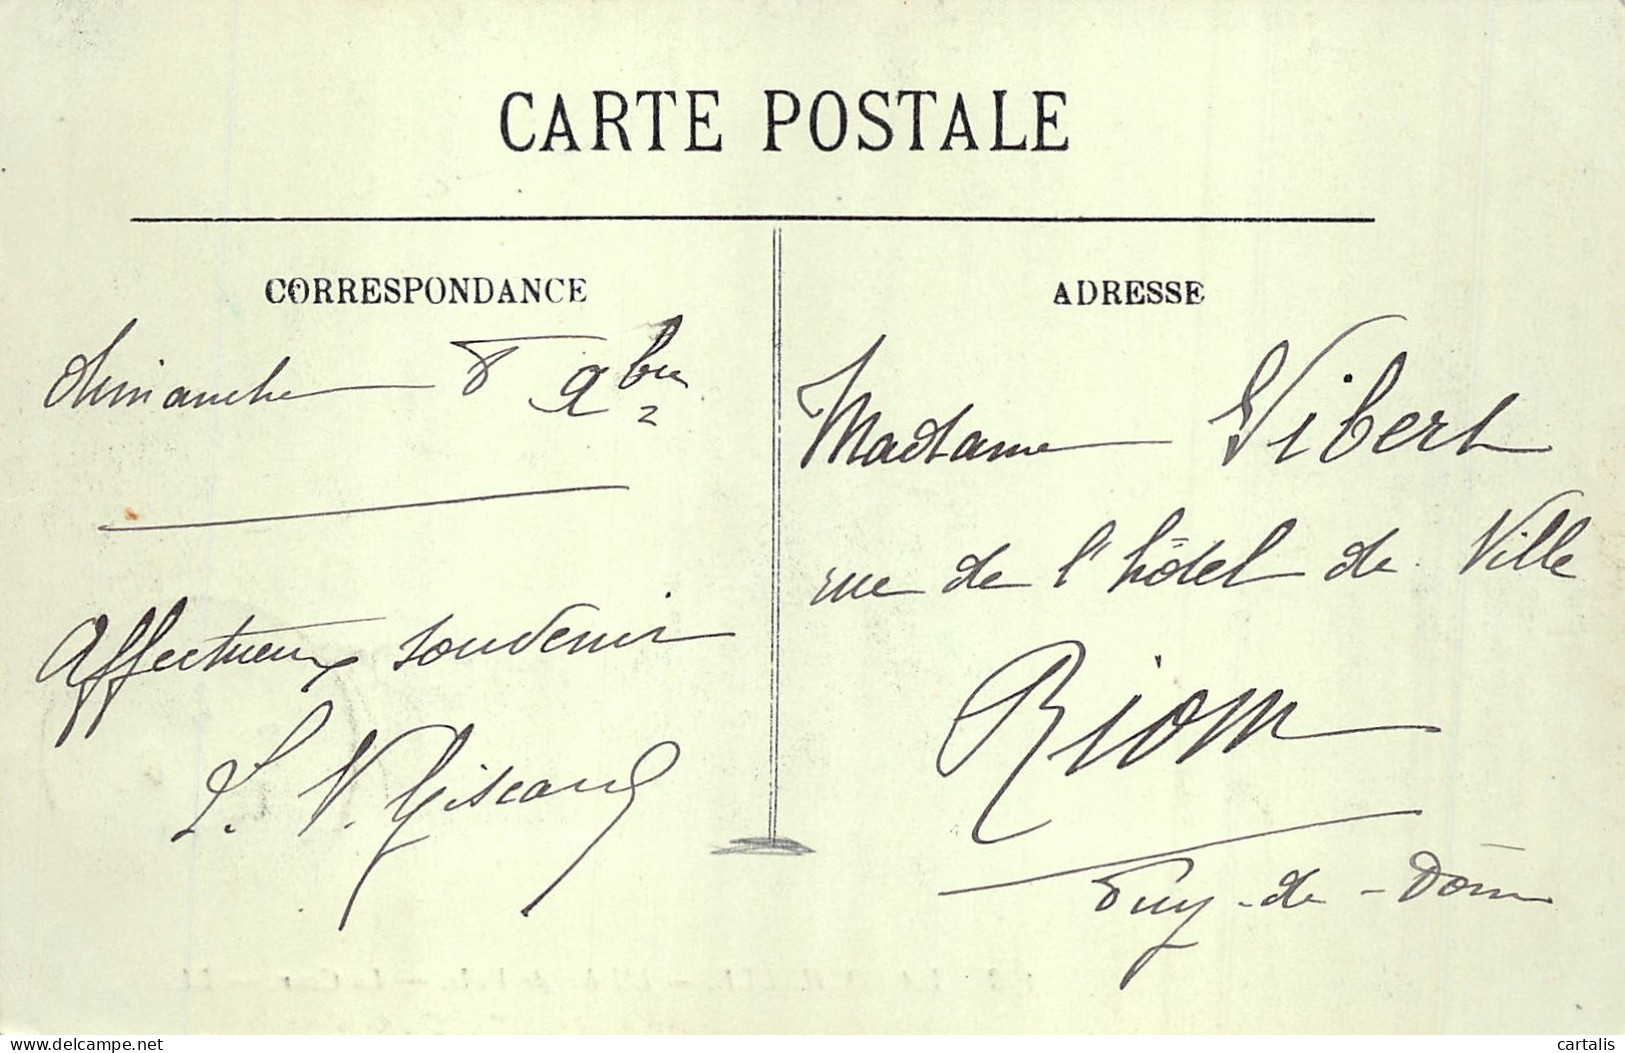 CARTE POSTALE
CORRESPONDANCE
Dimanche 8 9bre
Affectueux souvenir
L. V. Giscard
ADRESSE
Madame Vibert
rue de l'hôtel de Ville
Riom
Puy-de-Dôme
delcampe.net
cartalis